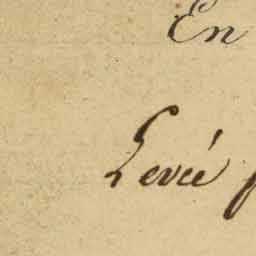 En
Levée